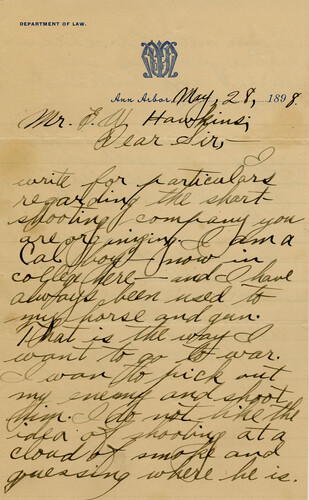 DEPARTMENT OF LAW.
Ann Arbor, May, 28, 1898.
Mr. E. W. Hawkins,
Dear Sir,—
I
write for particulars
regarding the short
shooting company you
are orginizing. I am a
Cal. boy — now in
college here — and I have
always been used to
my horse and gun.
That is the way I
want to go to war.
I wan to pick out
my enemy and shoot
him. I do not like the
idea of shooting at a
cloud of smoke and
guessing where he is.